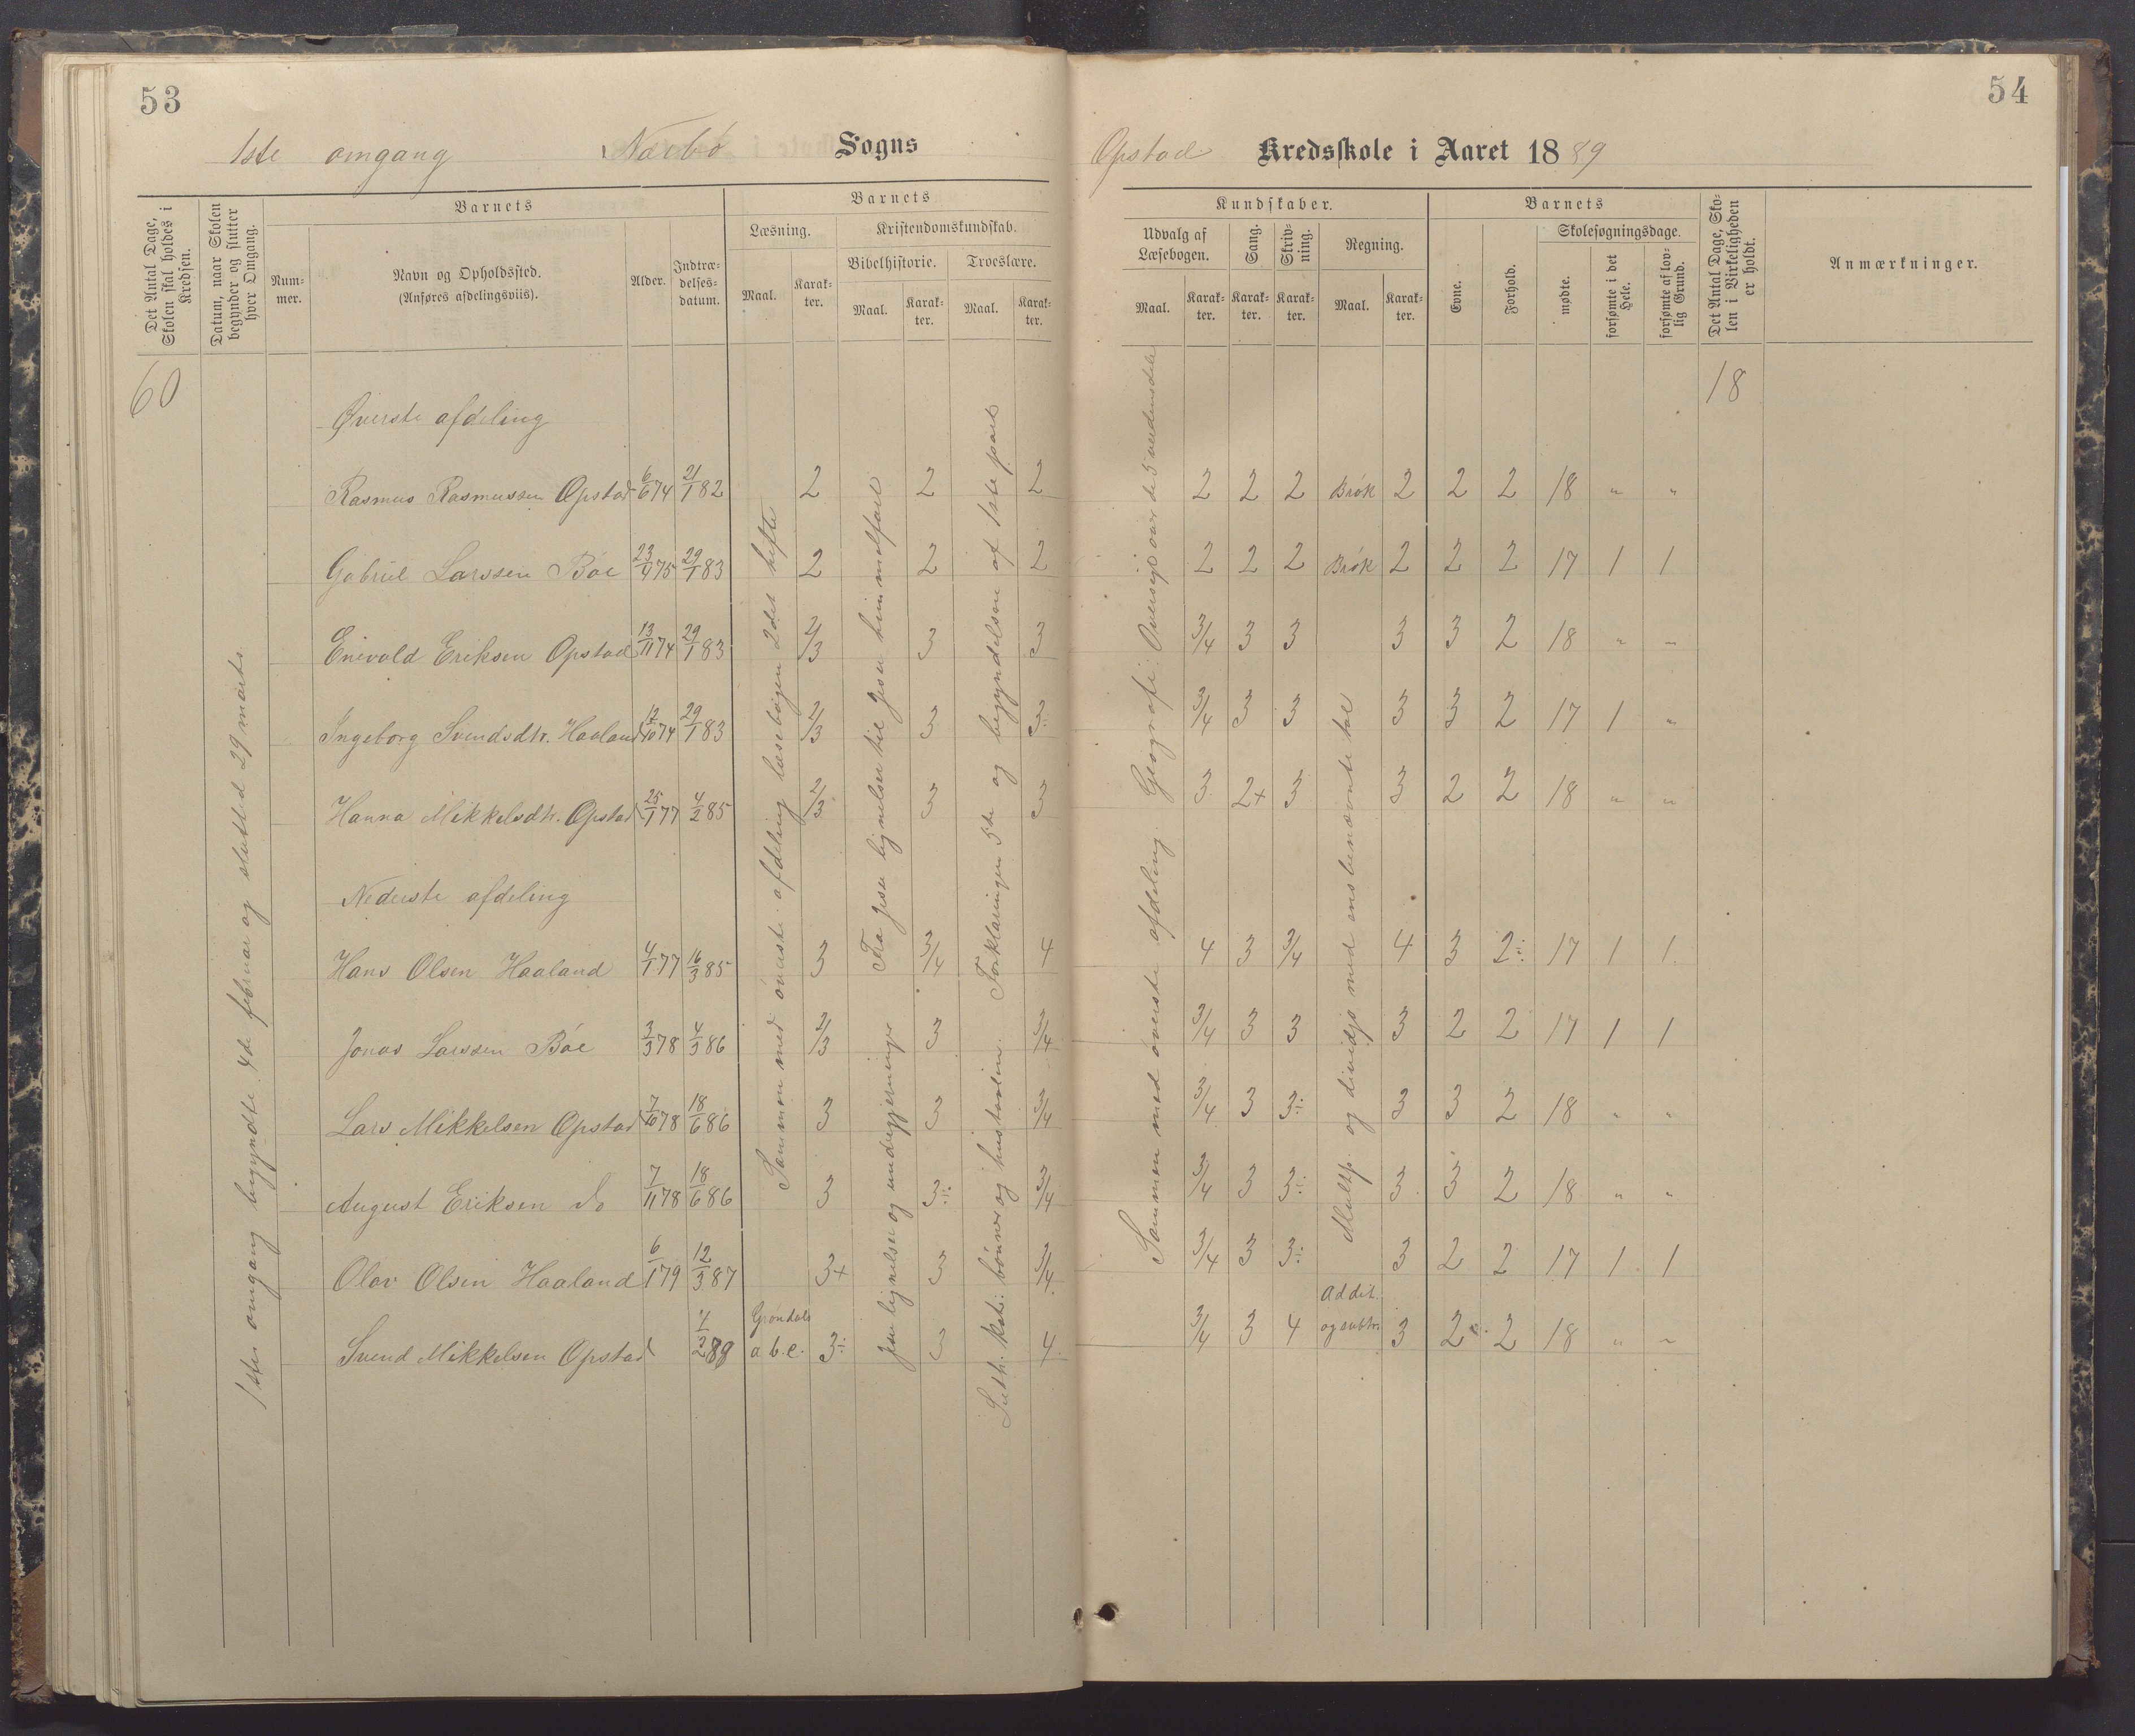 53
1ste omgang Nærbø Sogns
Det Antal Dage, Skolen skal holdes i Kredsen.
Datum, naar Skolen begynder og slutter hver Omgang.
Barnets
Num-
mer.
Navn og Opholdssted.
(Anføres afdelingsviis).
Alder.
Indtræ-
delses-
datum.
Barnets
Læsning.
Maal.
Karak-
ter.
Kristendomskundskab.
Bibelhistorie.
Maal.
Karak-
ter.
Troeslære.
Maal.
Karak-
ter.
60
1ste omgang begyndte 4de februar og slutted 29 marts
Øverste afdeling
Rasmus Rasmussen Opstad 6/6 74 21/1 82 2 2 2
Gabriel Larssen Bøe 23/4 75 29/1 83 2 2 2
Enevald Eriksen Opstad 13/11 74 29/1 83 2/3 3 3
Ingeborg Svendsdtr. Haaland 12/10 74 29/1 83 2/3 3 3÷
Hanna Mikkelsdtr. Opstad 25/1 77 4/2 85 2/3 3 3
Nederste afdeling
Hans Olsen Haaland 4/1 77 16/3 85 3 3/4 4
Jonas Larssen Bøe 3/3 78 4/3 86 2/3 3 3/4
Lars Mikkelsen Opstad 7/10 78 18/6 86 3 3 3/4
August Eriksen do 7/11 78 18/6 86 3 3÷ 3/4
Olav Olsen Haaland 6/1 79 12/3 87 3+ 3 3/4
Svend Mikkelsen Opstad 4/2 89 Grøndals a.b.c. 3÷ 3 4
Sammen med øverste afdeling læsebogen 2det hefte
Fra Jesu lignelser til Jesu himmelfart
Jesu lignelser og undergjerninger
Forklaringen 5te og begyndelsen af 1ste part
Luth. kat: bønner og hustavlen.
54
Opstad Kredsskole i Aaret 1889
Kundskaber.
Udvalg af
Læsebogen.
Maal.
Karak-
ter.
Sang.
Karak-
ter.
Skriv-
ning.
Karak-
ter.
Regning.
Maal.
Karak-
ter.
Barnets
Evne.
Forhold.
Skolesøgningsdage.
mødte.
forsømte i det Hele.
forsømte af lov-
lig Grund.
Det Antal Dage, Sko-
len i Virkeligheden
er holdt.
Anmærkninger.
18
2 2 2 Brøk 2 2 2 18 " "
2 2 2 Brøk 2 2 2 17 1 1
3/4 3 3 3 3 2 18 " "
3/4 3 3 3 3 2 17 1 "
3 2+ 3 3 2 2 18 " "
4 3 3/4 4 3 2÷ 17 1 1
3/4 3 3 3 2 2 17 1 1
3/4 3 3÷ 3 3 2 18 " "
3/4 3 3÷ 3 3 2 18 " "
3/4 3 3÷ 3 2 2 17 1 1
3/4 3 4 Addit. og subtr. 3 2 2 18 " "
Geografi: Oversigt over de 5 verdensdele
Sammen med øverste afdeling.
Multp. og dividjo med ensbenævnte tal